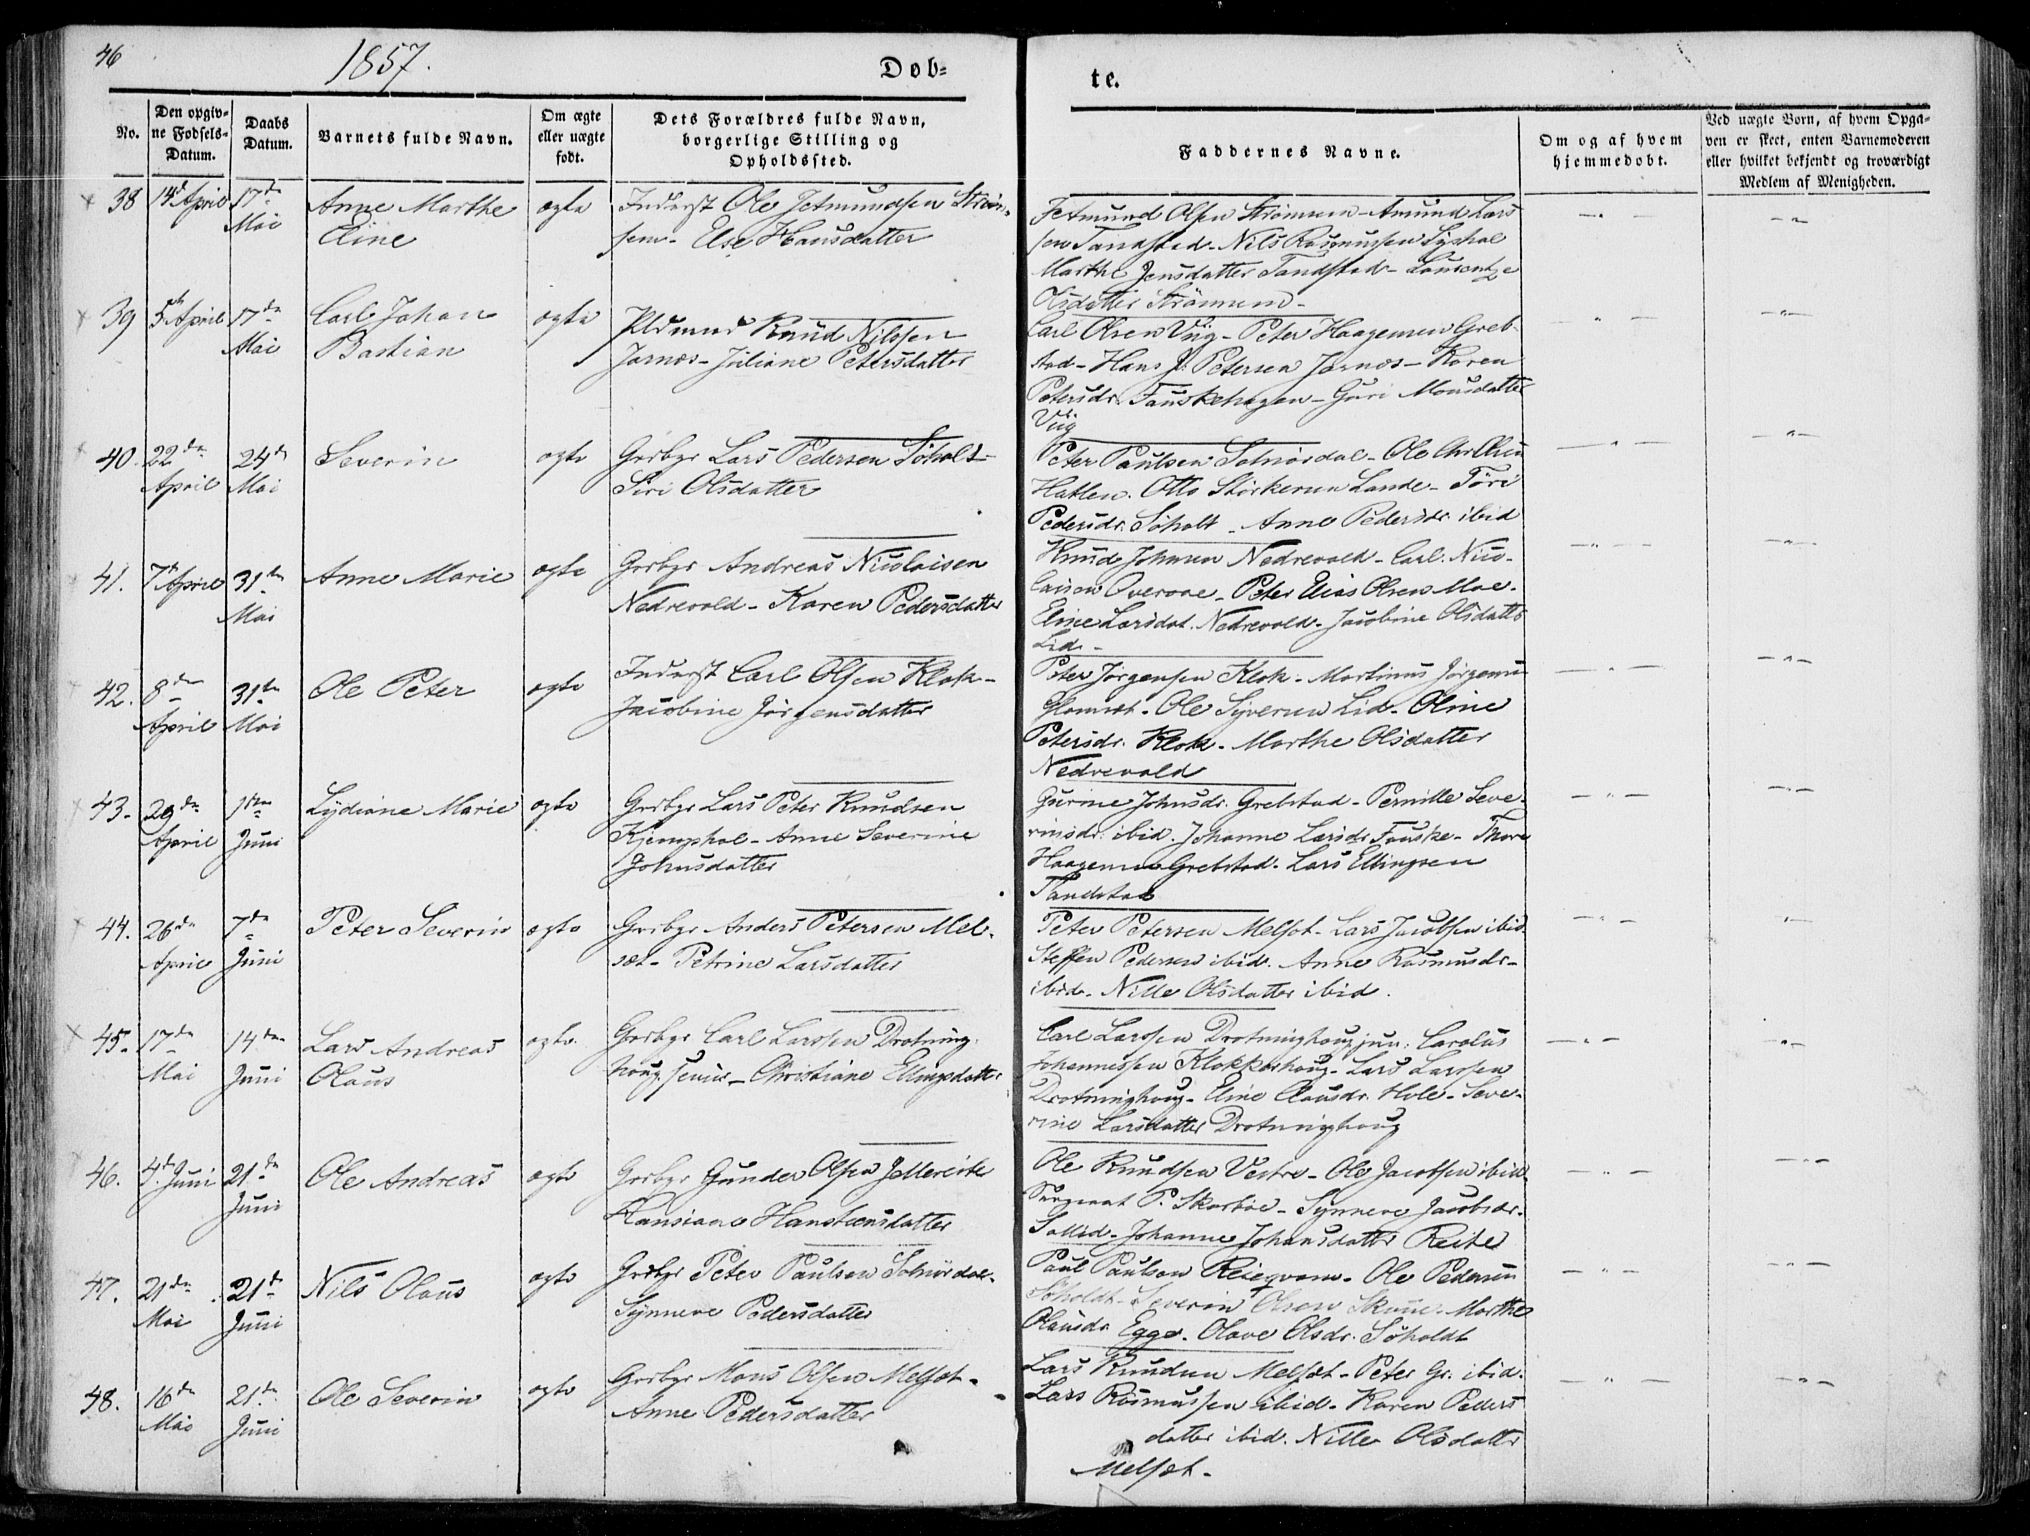 46
1857.
Døb-
te.
No.
Den opgiv-
ne Fødsels-
Datum.
Daabs
Datum.
Barnets fulde Navn.
Om ægte
eller uægte
født.
Dets Forældres fulde Navn,
borgerlige Stilling og
Opholdssted.
Faddernes Navne.
Om og af hvem
hjemmedøbt.
Ved uægte Børn, af hvem Opga-
ven er skeet, enten Barnemoderen
eller hvilket bekjendt og troværdigt
Medlem af Menigheden.
38 14d April 17de Mai
Anne Marthe
Eline
ægte
Inderst Ole Jetmundsen Strøm-
sem- Else Hansdatter
Jetmund Olsen Strømsem- Amund Lars
sen Tandstad- Nils Rasmussen Syphol
Marthe Jensdatter Tandstad- Laurentze
Olsdatter Strømmem-
39 5te April 17de Mai
Carl Johan
Bastian
ægte
Pldmand Knud Nilssen
Jarnæs- Juliane Petersdatter
Carl Olsen Viig- Peter Haagensen Greb-
stad- Hans J. Petersen Jarnæs- Karen
Petersdr. Fauskehagen- Guri Monsdatter
Viig
40. 22de April 24de Mai
Severin
ægte
Grdbgr Lars Pedersen Søholt-
Siri Olsdatter
Peter Paulsen Solnørdal- Ole Chr Olsen
Hatlen. Otto Størkersen Lande- Tøri
Pedersdr. Søholt- Anne Pedersdr. ibid
41. 7de April 31te Mai
Anne Marie
ægte
Grdbgr Andreas Nicolaisen
Nedrevold- Karen Pedersdatter
Knud Johnsen Nedrevold- Carl Nico-
laisen Overaae- Peter Elias Olsen Moe-
Eline Larsdat. Nedrevold- Jacobine Olsdatter
Lid-
42. 8de April 31te Mai
Ole Peter
ægte
Inderst Carl Olsen Klok-
Jacobine Jørgensdatter
Peter Jørgensen Klok- Martinus Jørgensen
Glomsæt- Ole Syversen Lid- Oline
Petersdr. Klok- Marthe Olsdatter
Nedrevold
43. 29de April 1ste Juni
Lydiane Marie
ægte
Grdbgr Lars Peter Knudsen
Kjemphol- Anne Severine
Johnsdatter
Gurine Johnsdr. Grebstad- Pernille Seve-
rinsdr. ibid. Johanne Larsdr Fauske- Thore
Haagensen Grebstad. Lars Ellingsen
Tandstad
44. 26de April 7de Juni
Peter Severin
ægte
Grdbgr Anders Petersen Mel-
sæt- Petrine Larsdatter
Peter Petersen Melsæt- Lars Jacobsen ibid
Steffen Pedersen ibid. Anne Rasmusdr-
ibid- Nille Olsdatter ibid.
45. 17de Mai 14de Juni
Lars Andreas
Olaus
ægte.
Grdbgr Carl Larssen Drotning-
houg senior- Christiane Ellingsdatter
Carl Larssen Drotninghoug jun: Carolus
Johannessen Klokkerhoug- Lars Larssen
Drotninghoug- Eline Clausdr. Hole- Seve-
rine Larsdatter Drotninghoug
46. 4de Juni 21de Juni
Ole Andreas
ægte
Grdbgr Gunder Olsen
Hansiane Hansteensdatter
Ole Knudsen Vestre- Ole Jacobsen ibid.
P. Skorbøe- Synneve Jacobsdr.
Johanne Johansdatter Reite
47. 21de Mai 21de Juni
Nils Olaus
ægte
Grdbgr Peter Paulsen Solnørdal-
Synneve Pedersdatter
Paul Paulsen Reieqvam- Ole Pedersen
Søholdt- Severin Olsen Marthe
Olausdr Egge. Olave Olsdr. Søholdt
48. 16de Mai 21de Juni
Ole Severin
ægte
Grdbgr Mons Olsen Melsæt-
Anne Pedersdatter
Lars Knudsen Melsæt- Peter Gr. ibid.
Lars Rasmussen ibid- Karen Peders
datter ibid. Nille Olsdatter
Melsæt-